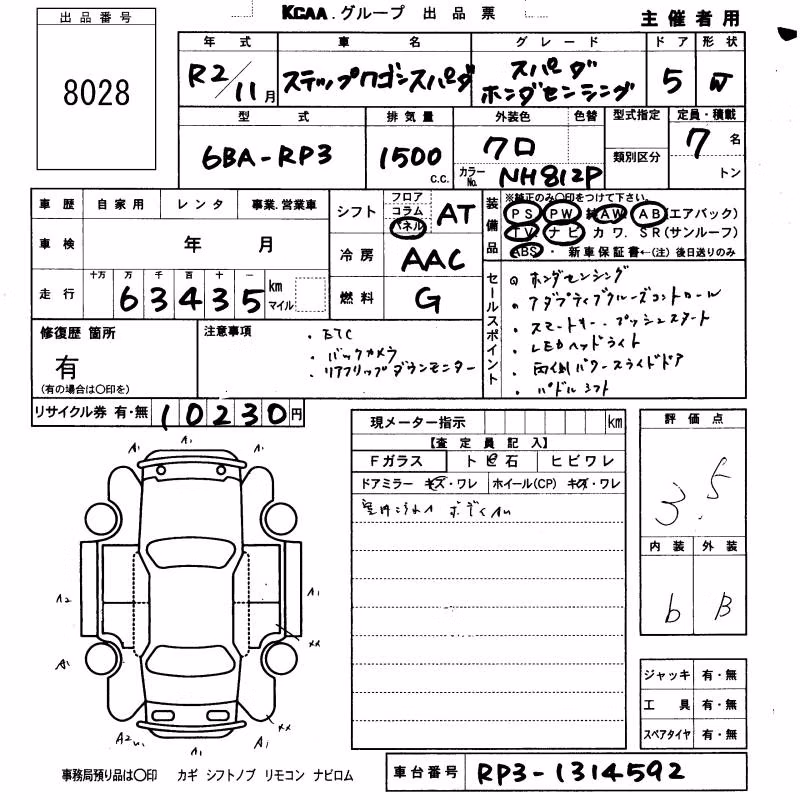 KCAA.グループ 出品票
主催者用
出品番号
8028
年式 車名 グレード ドア 形状
R2/11月 ステップワゴンスパーダ スパーダ ホンダセンシング 5 W
型式 排気量 外装色 色替 型式指定 定員・積載
6BA-RP3 1500 c.c. クロ 類別区分 7名
カラーNo. NH812P トン
車歴 自家用 レンタ 事業.営業車
車検 年 月
走行 十万 万 千 百 十 一
63435 km マイル
シフト フロア コラム パネル AT
冷房 AAC
燃料 G
装備品
※純正のみ〇印をつけて下さい。
PS PW AW AB(エアバック)
TV ナビ カワ. SR(サンルーフ)
ABS ・ 新車保証書←(注) 後日送りのみ
セールスポイント
ホンダセンシング
・アダプティブクルーズコントロール
・スマートキー、プッシュスタート
・LEDヘッドライト
・両側パワースライドドア
・パドルシフト
修復歴 箇所
有
(有の場合は〇印を)
注意事項
・ETC
・バックカメラ
・リアフリップダウンモニター
リサイクル券 有・無 10230円
現メーター指示 km
【査定員記入】
Fガラス トビ石 ヒビワレ
ドアミラー キズ・ワレ ホイール(CP) キズ・ワレ
評価点
3.5
内装 外装
b B
A1 A1 A1
A2 A1
A1 XX
XX
A2 A1 A1
ジャッキ 有・無
工具 有・無
スペアタイヤ 有・無
事務局預り品は〇印 カギ シフトノブ リモコン ナビロム
車台番号 RP3-1314592